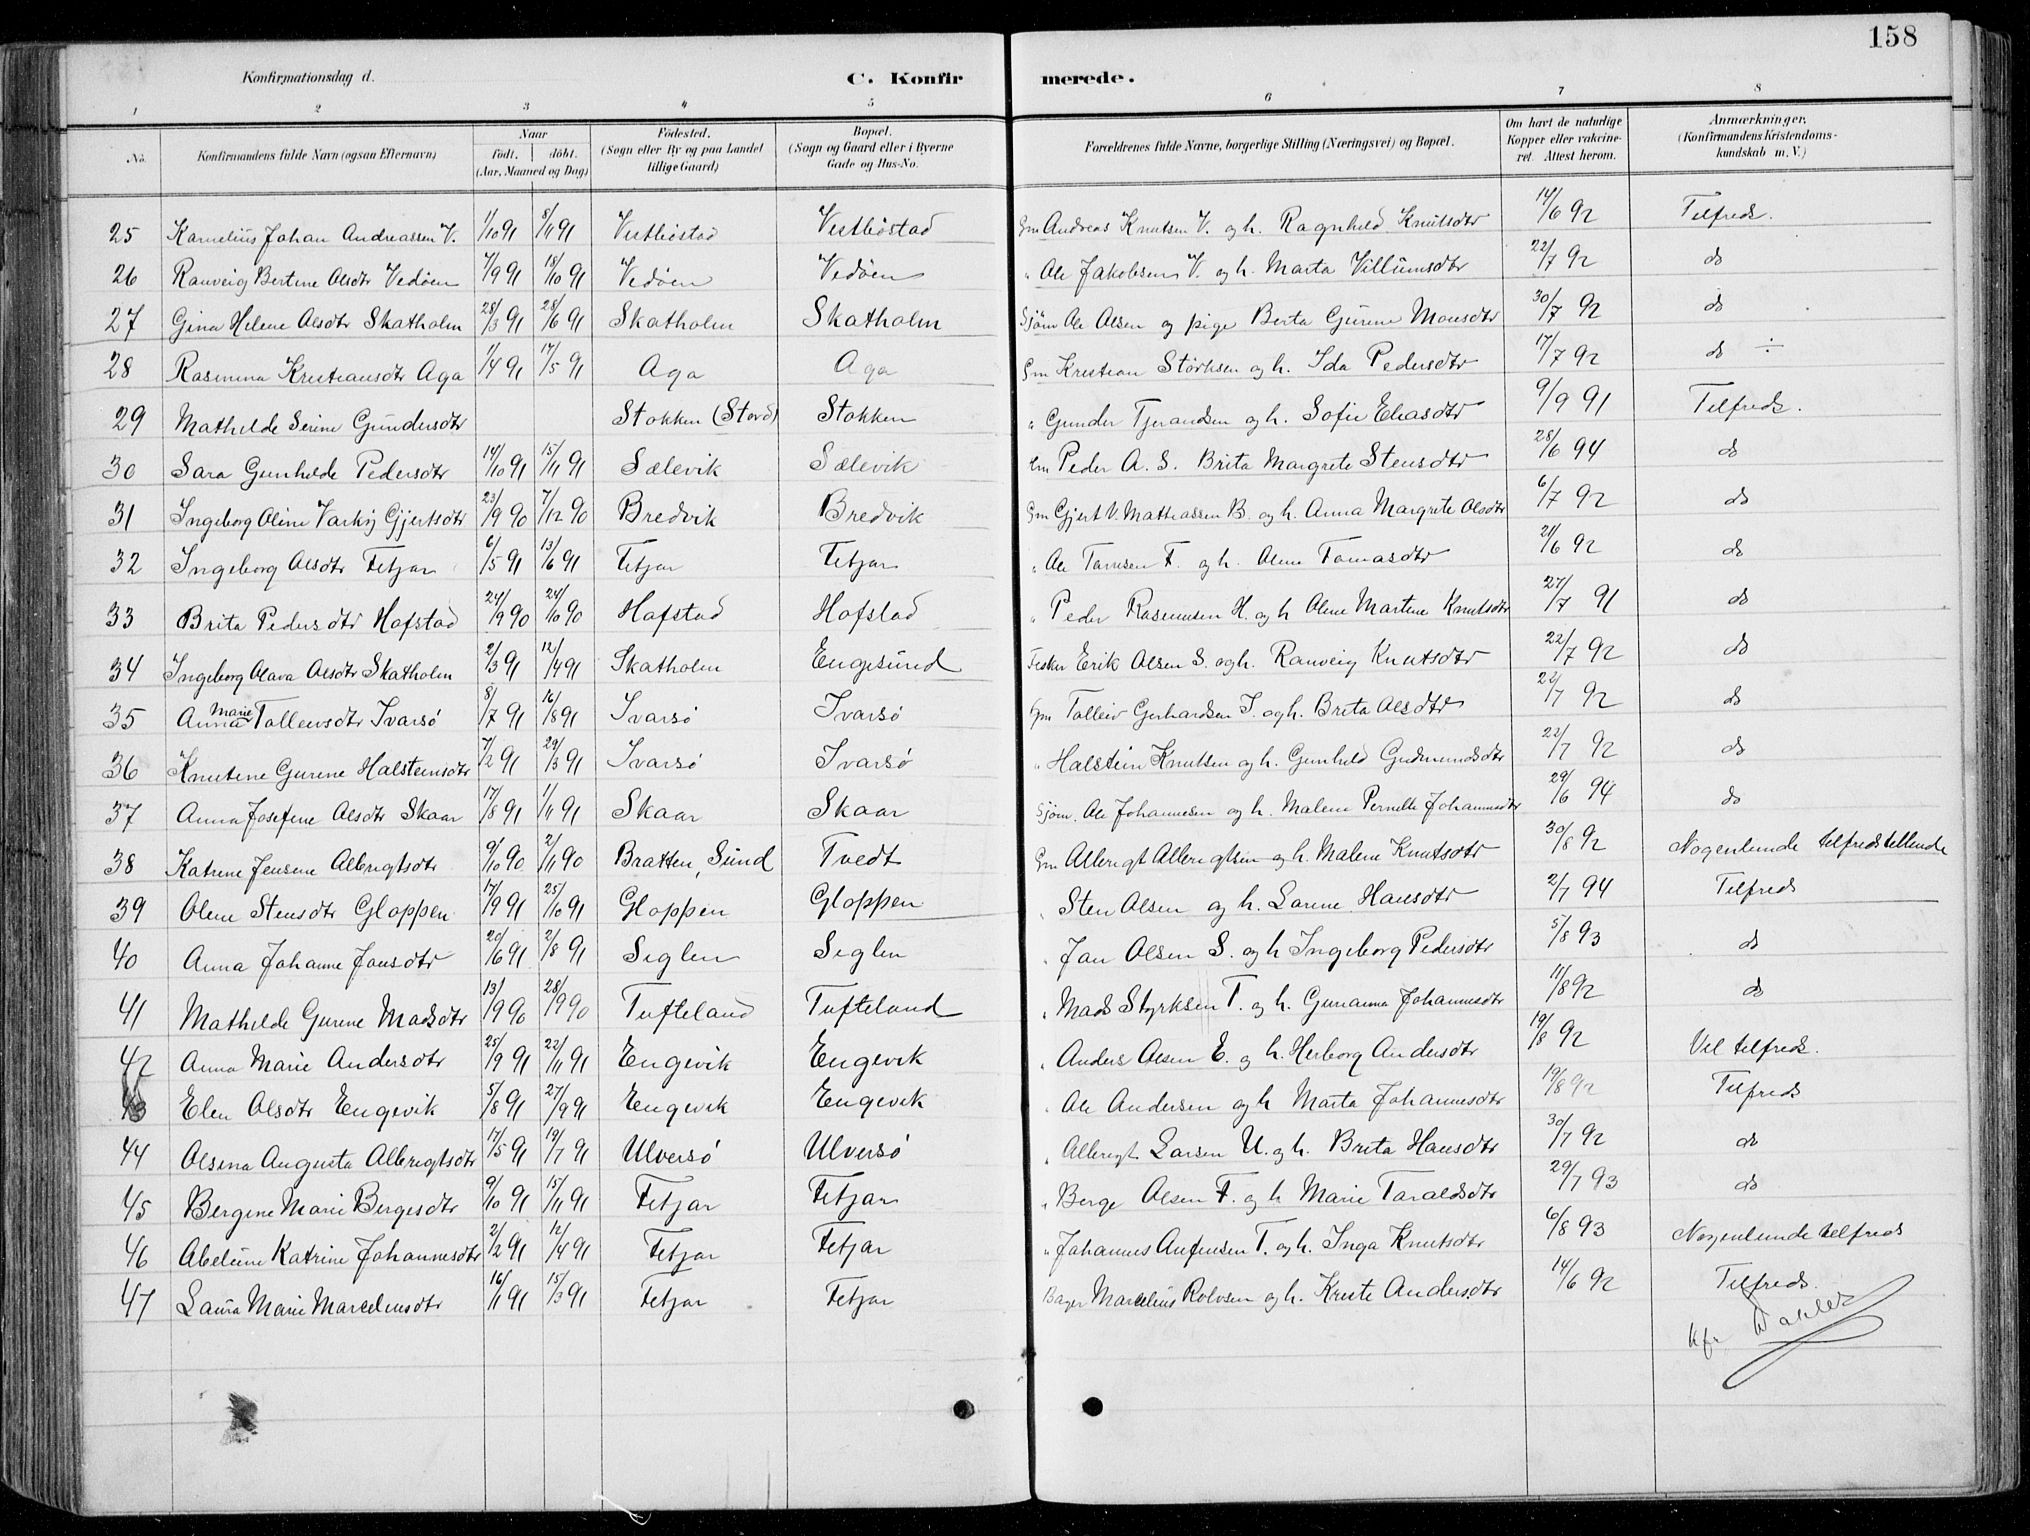 158
Konfirmationsdag d. C. Konfirmerede.
1 2 3 4 5 6 7 8
No. Konfirmandens fulde Navn (ogsaa Efternavn) Naar födt. döbt. (Aar, Maaned og Dag) Födested. (Sogn eller By og paa Landet tillige Gaard) Bopæl. (Sogn og Gaard eller i Byerne Gade og Hus-No. Forældrenes fulde Navne, borgerlige Stilling (Næringsvei) og Bopæl. Om havt de naturlige Kopper eller vakcineret. Attest herom. Anmærkninger. (Konfirmandens Kristendomskundskab m. V.)
25 Kornelius Johan Andreassen V. 1/10 91 8/11 91 Vestbøstad Vestbøstad Gm Andreas Knutsen V. og h. Ragnhild Knutsdtr 14/6 92 Tilfreds.
26 Ranveig Bertine Olsdtr Vedøen 7/9 91 18/10 91 Vedøen Vedøen " Ole Jakobsen V. og h. Marta Villumsdtr 22/7 92 do
27 Gina Helene Olsdtr Skatholm 28/3 91 28/6 91 Skatholm Skatholm Sjøm Ole Olsen og pige Berta Gurine Monsdtr 30/7 92 do
28 Rasmina Kristiansdtr Aga 1/4 91 17/5 91 Aga Aga Gm Kristian Størksen og h. Ida Pedersdtr 17/7 92 do ÷
29 Mathilde Serine Gundersdtr Stokken (Stord) Stokken " Gunder Tjerandsen og h. Sofie Eliasdtr 9/9 91 Tilfreds.
30 Sara Gunhilde Pedersdtr 14/10 91 15/11 91 Sælevik Sælevik Em Peder A. S. Brita Margrete Stensdtr 28/6 94 do
31 Ingeborg Oline Varkij Gjertsdtr 23/9 90 7/12 90 Bredvik Bredvik Gm Gjert V. Mathiassen B. og h. Anna Margrete Olsdtr 6/7 92 do
32 Ingeborg Olsdtr Fitjar 6/5 91 13/6 91 Fitjar Fitjar " Ole Tomsen F. og h. Oline Tomasdtr 21/6 92 do
33 Brita Pedersdtr Hofstad 24/9 90 24/10 90 Hofstad Hofstad " Peder Rasmusen H. og h Oline Martine Knutsdtr 27/7 91 do
34 Ingeborg Olava Olsdtr Skatholm 2/3 91 12/4 91 Skatholm Engesund Fisker Erik Olsen S. og h. Ranveig Knutsdtr 22/7 92 do
35 Anna Marie Tolleivsdtr Ivarsø 8/7 91 16/8 91 Ivarsø Ivarsø Gm Tolleiv Gerhardsen I. og h. Brita Olsdtr 22/7 92 do
36 Knutine Gurine Halsteinsdtr 7/2 91 29/3 91 Ivarsø Ivarsø " Halstein Knutsen og h. Gunhild Gudmundsdtr 22/7 92 do
37 Anna Josefine Olsdtr Skaar 17/8 91 1/11 91 Skaar Skaar Sjøm. Ole Johannesen og h. Malene Pernille Johannesdtr 29/6 94 do
38 Katrine Jensine Albrigtsdtr 9/10 90 2/11 90 Bratten, Sund Tvedt Gm Albrigt Albrigtsen og h. Malene Knutsdtr 30/8 92 Nogenlunde tilfredstillende
39 Oline Stensdtr Gloppen 17/9 91 25/10 91 Gloppen Gloppen " Sten Olsen og h. Larine Hansdtr 2/7 94 Tilfreds
40 Anna Johanne Jonsdtr 20/6 91 2/8 91 Siglen Siglen " Jon Olsen S. og h Ingeborg Pedersdtr 5/8 93 do
41 Mathilde Gurine Madsdtr 13/9 90 28/9 90 Tufteland Tufteland " Mads Styrksen T. og h. Gurianna Johannesdtr 11/8 92 do
42 Anna Marie Andersdtr 25/9 91 22/11 91 Engevik Engevik " Anders Olsen E. og h. Herborg Andersdtr 19/8 92 Vel tilfreds.
43 Elen Olsdtr Engevik 5/8 91 27/9 91 Engevik Engevik " Ole Andersen og h Marta Johannesdtr 19/8 92 Tilfreds
44 Olsina Augusta Albrigtsdtr 17/5 91 19/7 91 Ulversø Ulversø " Albrigt Larsen U. og h. Brita Hansdtr 30/7 92 do
45 Bergine Marie Bergesdtr 9/10 91 15/11 91 Fitjar Fitjar " Berge Olsen F. og h Marie Taraldsdtr 29/7 93 do
46 Abeline Katrine Johannesdtr 2/2 91 12/4 91 Fitjar Fitjar " Johannes Anfinsen T. og h. Inga Knutsdtr 6/8 93 Nogenlunde tilfreds
47 Laura Marie Marceliusdtr 16/1 91 15/3 91 Fitjar Fitjar Bager Marcelius Rolvsen og h. Kriste Andersdtr 14/6 92 Tilfreds.
Kfr. Dahler